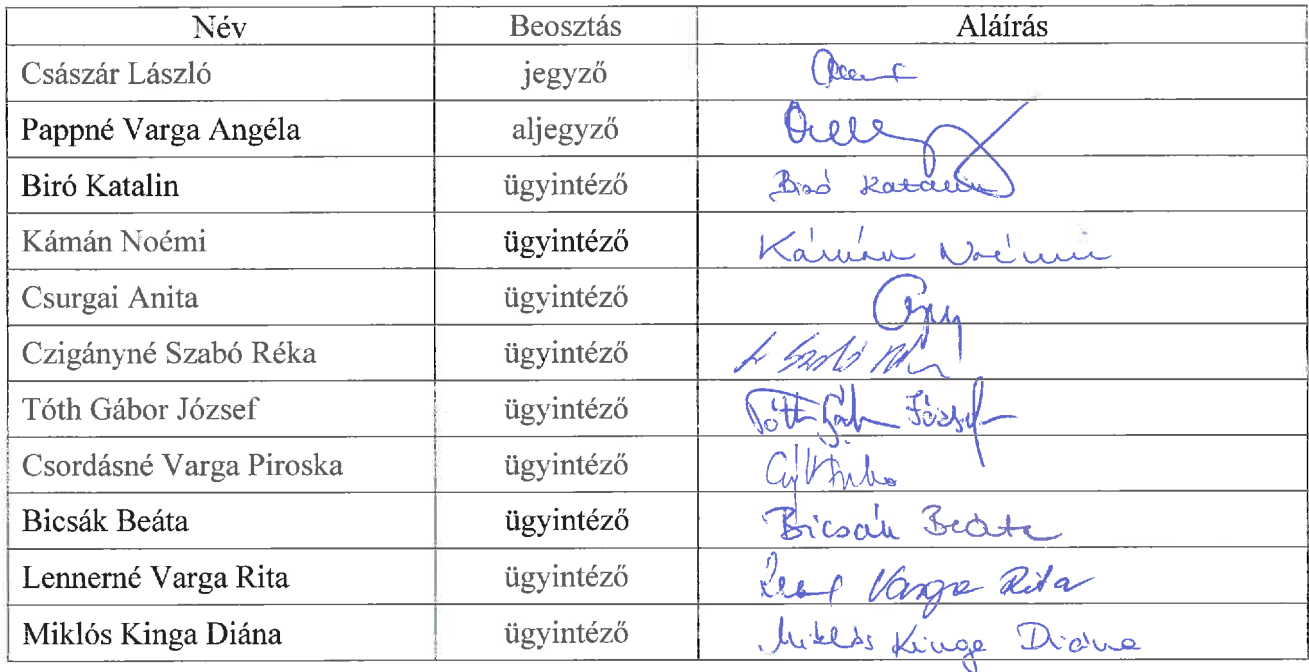 Név Beosztás Aláírás
Császár László jegyző
Pappné Varga Angéla aljegyző
Biró Katalin ügyintéző Biró Katalin
Kámán Noémi ügyintéző Kámán Noémi
Csurgai Anita ügyintéző
Czigányné Szabó Réka ügyintéző Szabó
Tóth Gábor József ügyintéző Tóth Gábor József
Csordásné Varga Piroska ügyintéző
Bicsák Beáta ügyintéző Bicsák Beáta
Lennerné Varga Rita ügyintéző Varga Rita
Miklós Kinga Diána ügyintéző Miklós Kinga Diána